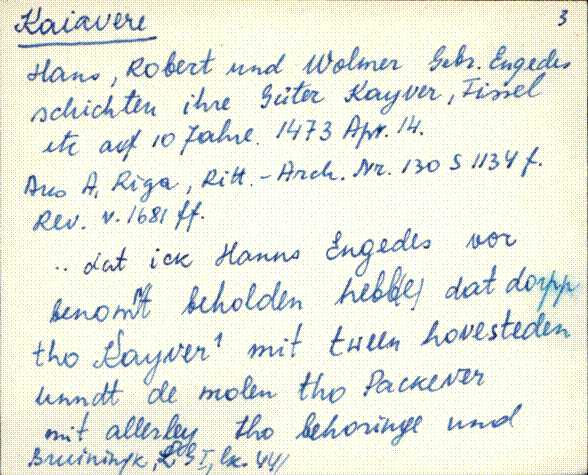 Kaiavere 3
Hans, Robert und Wolmer Gebr. Engedes
schichten ihre Güter Kayver, Fissel
etc auf 10 Jahre. 1473 Apr. 14.
Aus A, Riga, Ritt.-Arch. Nr. 130 S 1134 f.
Rev. v. 1681 ff.
.. dat ick Hanns Engedes vor
benomt beholden hebb(e) dat dorpp
tho Kayver¹ mit tween hovesteden
unndt de molen tho Packever
mit allerley tho behoringe und
Bruiningk, LGU I, 441